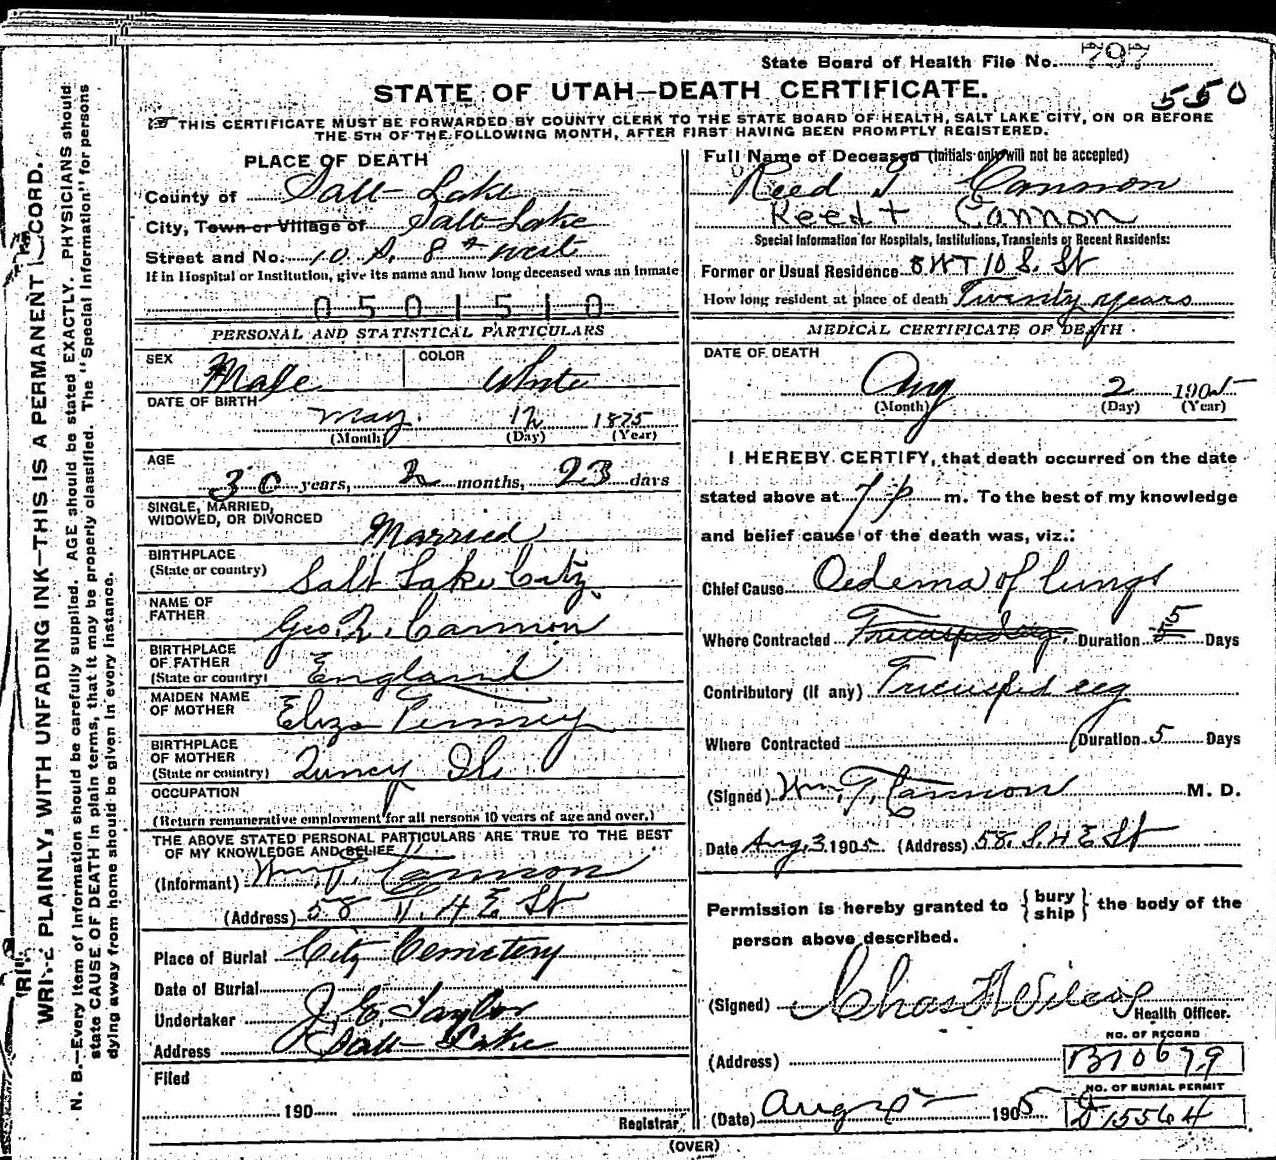 State Board of Health File No. 797
STATE OF UTAH—DEATH CERTIFICATE.
550
THIS CERTIFICATE MUST BE FORWARDED BY COUNTY CLERK TO THE STATE BOARD OF HEALTH, SALT LAKE CITY, ON OR BEFORE
THE 5TH OF THE FOLLOWING MONTH, AFTER FIRST HAVING BEEN PROMPTLY REGISTERED.
WRITE PLAINLY, WITH UNFADING INK—THIS IS A PERMANENT RECORD.
N. B.—Every item of information should be carefully supplied. AGE should be stated EXACTLY. PHYSICIANS should
state CAUSE OF DEATH in plain terms, that it may be properly classified. The "Special Information" for persons
dying away from home should be given in every instance.
PLACE OF DEATH
County of Salt Lake
City, Town or Village of Salt Lake
Street and No. 10 S. 8th West
If in Hospital or Institution, give its name and how long deceased was an inmate
0501510
PERSONAL AND STATISTICAL PARTICULARS
SEX Male COLOR White
DATE OF BIRTH
May 12 1875
(Month) (Day) (Year)
AGE
30 years, 2 months, 23 days
SINGLE, MARRIED,
WIDOWED, OR DIVORCED Married
BIRTHPLACE
(State or country) Salt Lake City
NAME OF
FATHER Geo. Q. Cannon
BIRTHPLACE
OF FATHER
(State or country) England
MAIDEN NAME
OF MOTHER Eliza Tenney
BIRTHPLACE
OF MOTHER
(State or country) Quincy Ill
OCCUPATION
(Return remunerative employment for all persons 10 years of age and over.)
THE ABOVE STATED PERSONAL PARTICULARS ARE TRUE TO THE BEST
OF MY KNOWLEDGE AND BELIEF
(Informant) Wm. T. Cannon
(Address) 58 4 E St
Place of Burial City Cemetery
Date of Burial
Undertaker J. E. Taylor
Address Salt Lake
Filed
190
Registrar
Full Name of Deceased (Initials only will not be accepted)
Reed T Cannon
Reed T Cannon
Special Information for Hospitals, Institutions, Transients or Recent Residents:
Former or Usual Residence 8 WT 10 S. St
How long resident at place of death Twenty years
MEDICAL CERTIFICATE OF DEATH
DATE OF DEATH
Aug 2 1905
(Month) (Day) (Year)
I HEREBY CERTIFY, that death occurred on the date
stated above at 7 p m. To the best of my knowledge
and belief cause of the death was, viz.:
Chief Cause Oedema of lungs
Where Contracted Duration 5 Days
Contributory (if any) Tricuspid reg
Where Contracted Duration 5 Days
(Signed) Wm. T. Cannon M. D.
Date Aug. 3 1905 (Address) 58. S. 4 E St
Permission is hereby granted to { bury
ship } the body of the
person above described.
(Signed) Chas H Wilcox
Health Officer.
NO. OF RECORD
(Address) B10679
NO. OF BURIAL PERMIT
(Date) Aug 5 1905 D15564
(OVER)